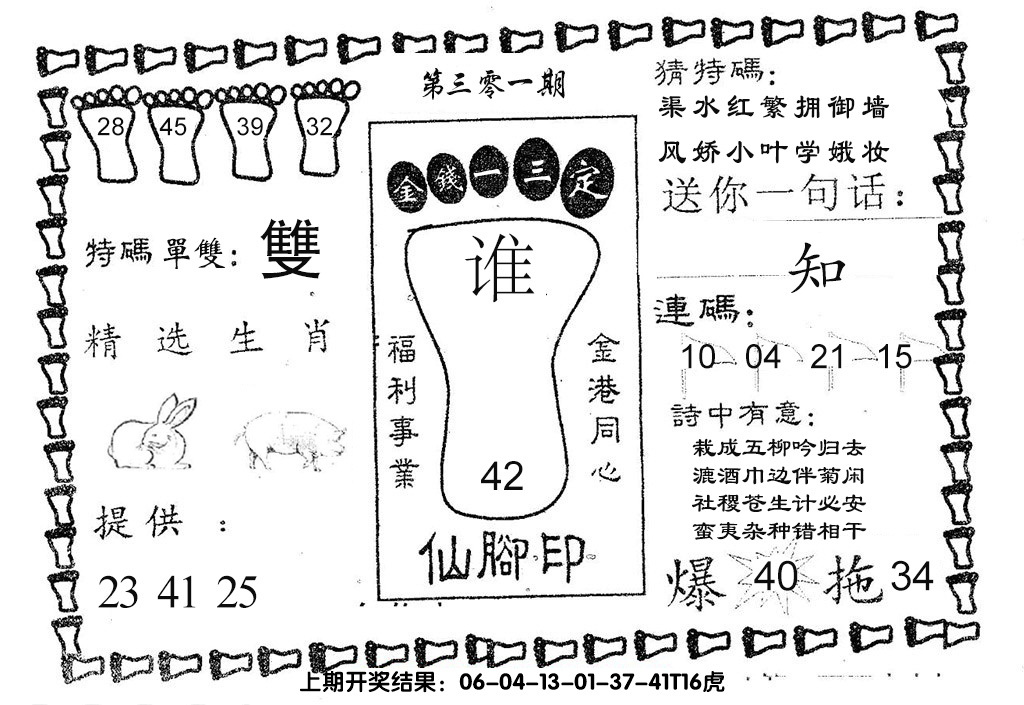 第三零一期
28 45 39 32
特碼單雙：雙
精选生肖
提供：
23 41 25
金錢一三定
谁
42
福利事業
金港同心
仙腳印
猜特碼：
渠水红繁拥御墙
风娇小叶学娥妆
送你一句话：
知
連碼：
10 04 21 15
詩中有意：
栽成五柳吟归去
漉酒巾边伴菊闲
社稷苍生计必安
蛮夷杂种错相干
爆 40 拖 34
上期开奖结果：06-04-13-01-37-41T16虎